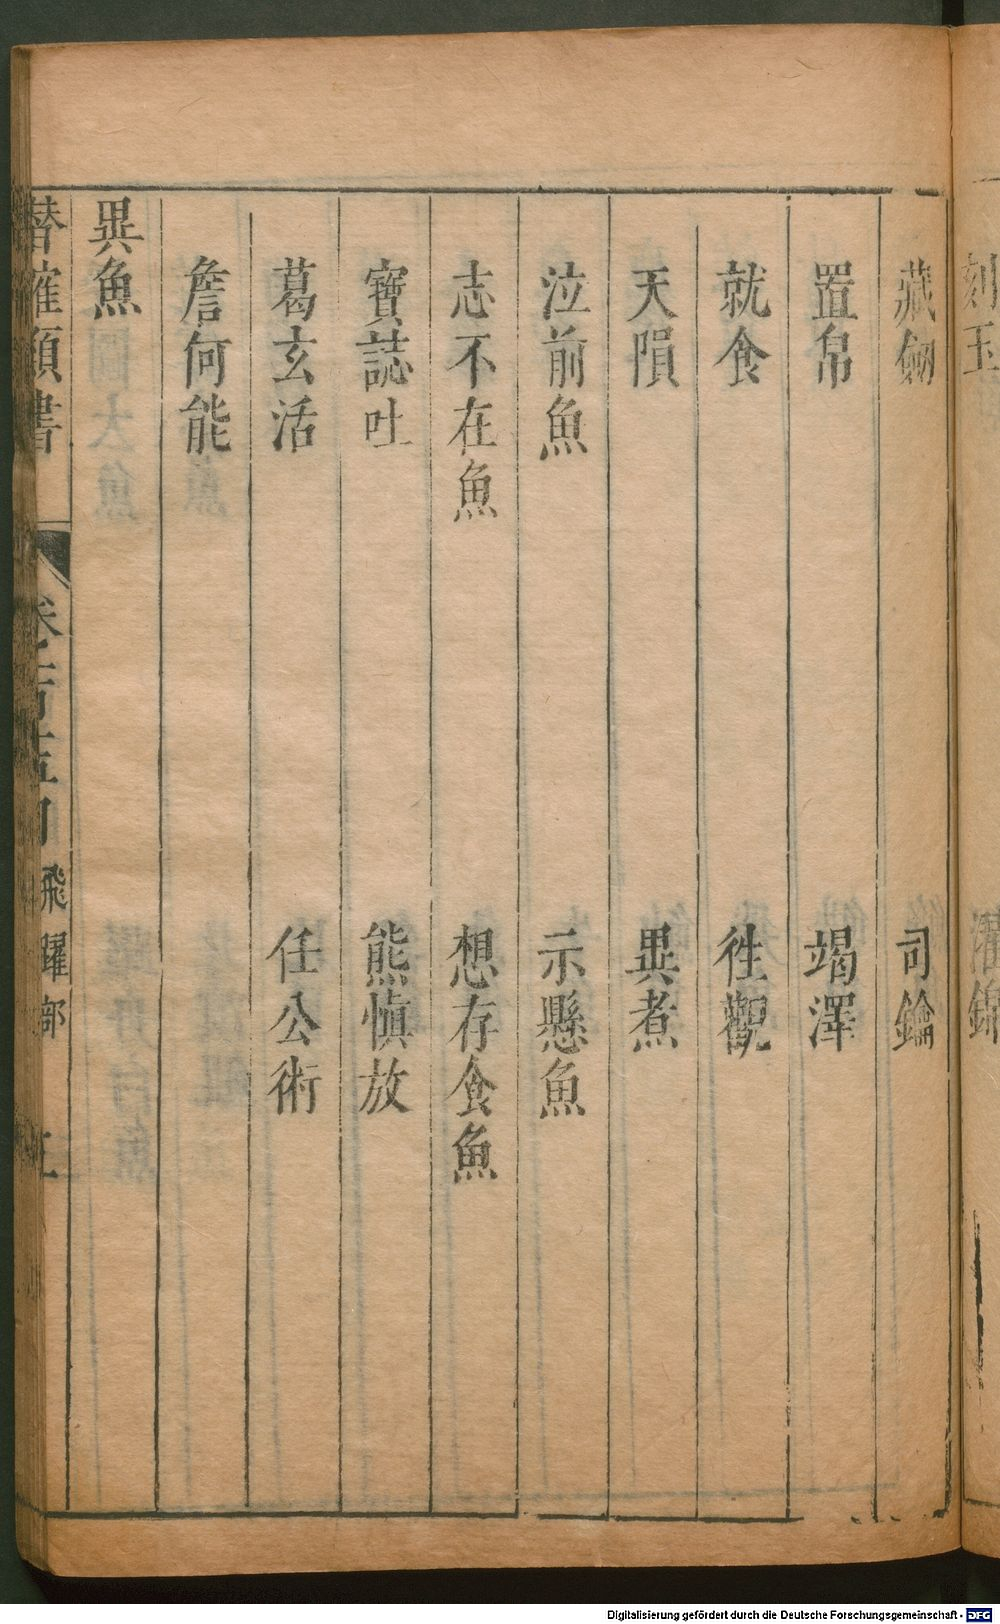 刻玉
藏劒　司鑰
置帛　竭澤
就食　徃觀
天隕　異煮
泣前魚　示懸魚
志不在魚　想存食魚
寶誌吐　熊愼放
葛玄活　任公術
詹何能
異魚
類書
飛躍部
Digitalisierung gefördert durch die Deutsche Forschungsgemeinschaft - DFG